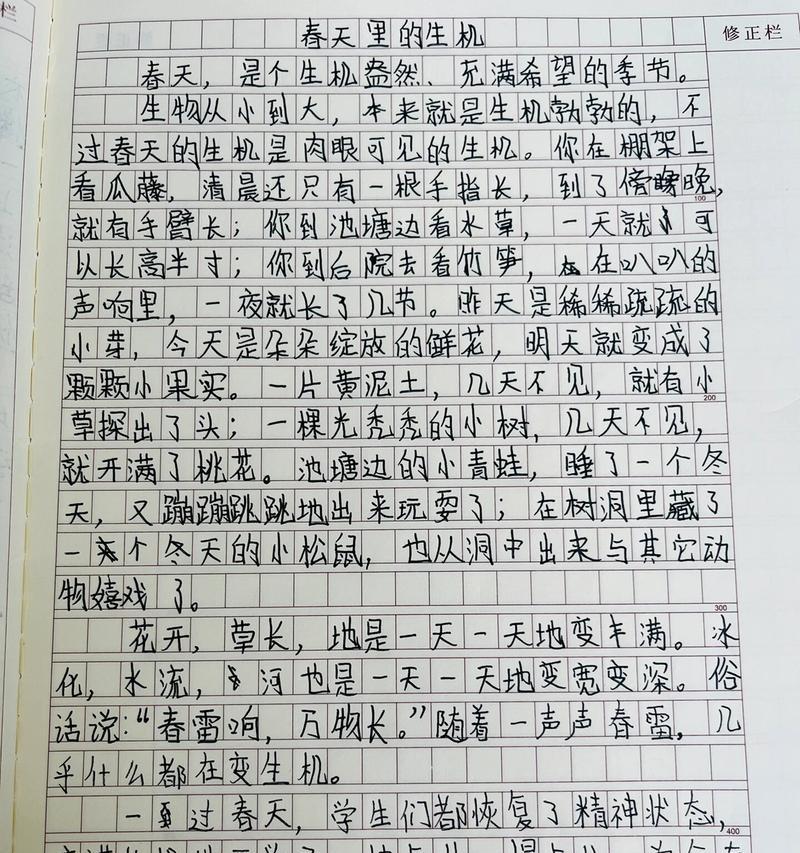 栏
修正栏
春天里的生机
春天，是个生机盎然、充满希望的季节。
生物从小到大，本来就是生机勃勃的，不
过春天的生机是肉眼可见的生机。你在棚架上
看瓜藤，清晨还只有一根手指长，到了傍晚，
100
就有手臂长；你到池塘边看水草，一天就可
以长高半寸；你到后院去看竹笋，在叭叭的
声响里，一夜就长了几节。昨天是稀稀疏疏的
小芽，今天是朵朵绽放的鲜花，明天就变成了
颗颗小果实。一片黄泥土，几天不见，就有小
200
草探出了头；一棵光秃秃的小树，几天不见，
就开满了桃花。池塘边的小青蛙，睡了一个冬
天，又蹦蹦跳跳地出来玩耍了；在树洞里藏了
一个冬天的小松鼠，也从洞中出来与其它动
物嬉戏了。
300
花开，草长，地是一天一天地变丰满。冰
化，水流，河也是一天一天地变宽变深。俗
话说：“春雷响，万物长。”随着一声声春雷，几
乎什么都在变生机。
一过春天，学生们都恢复了精神状态，
400